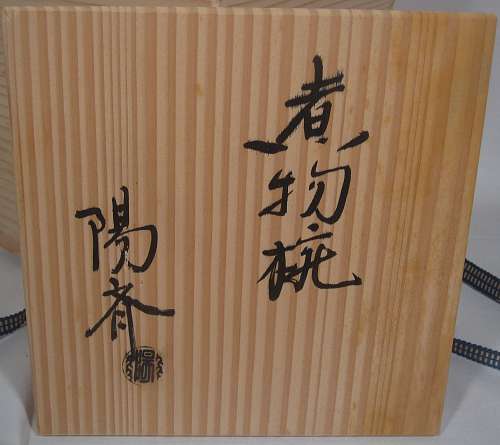 煮物椀
陽斎